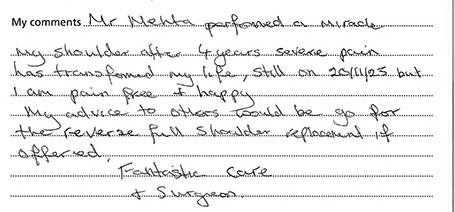 My comments Mr Mehta performed a miracle
my shoulder after 4 years severe pain
has transformed my life, still on 20/11/25 but
I am pain free + happy
My advice to others would be go for
the reverse full shoulder replacement if
offerred,
Fantastic Care
+ Surgeon.